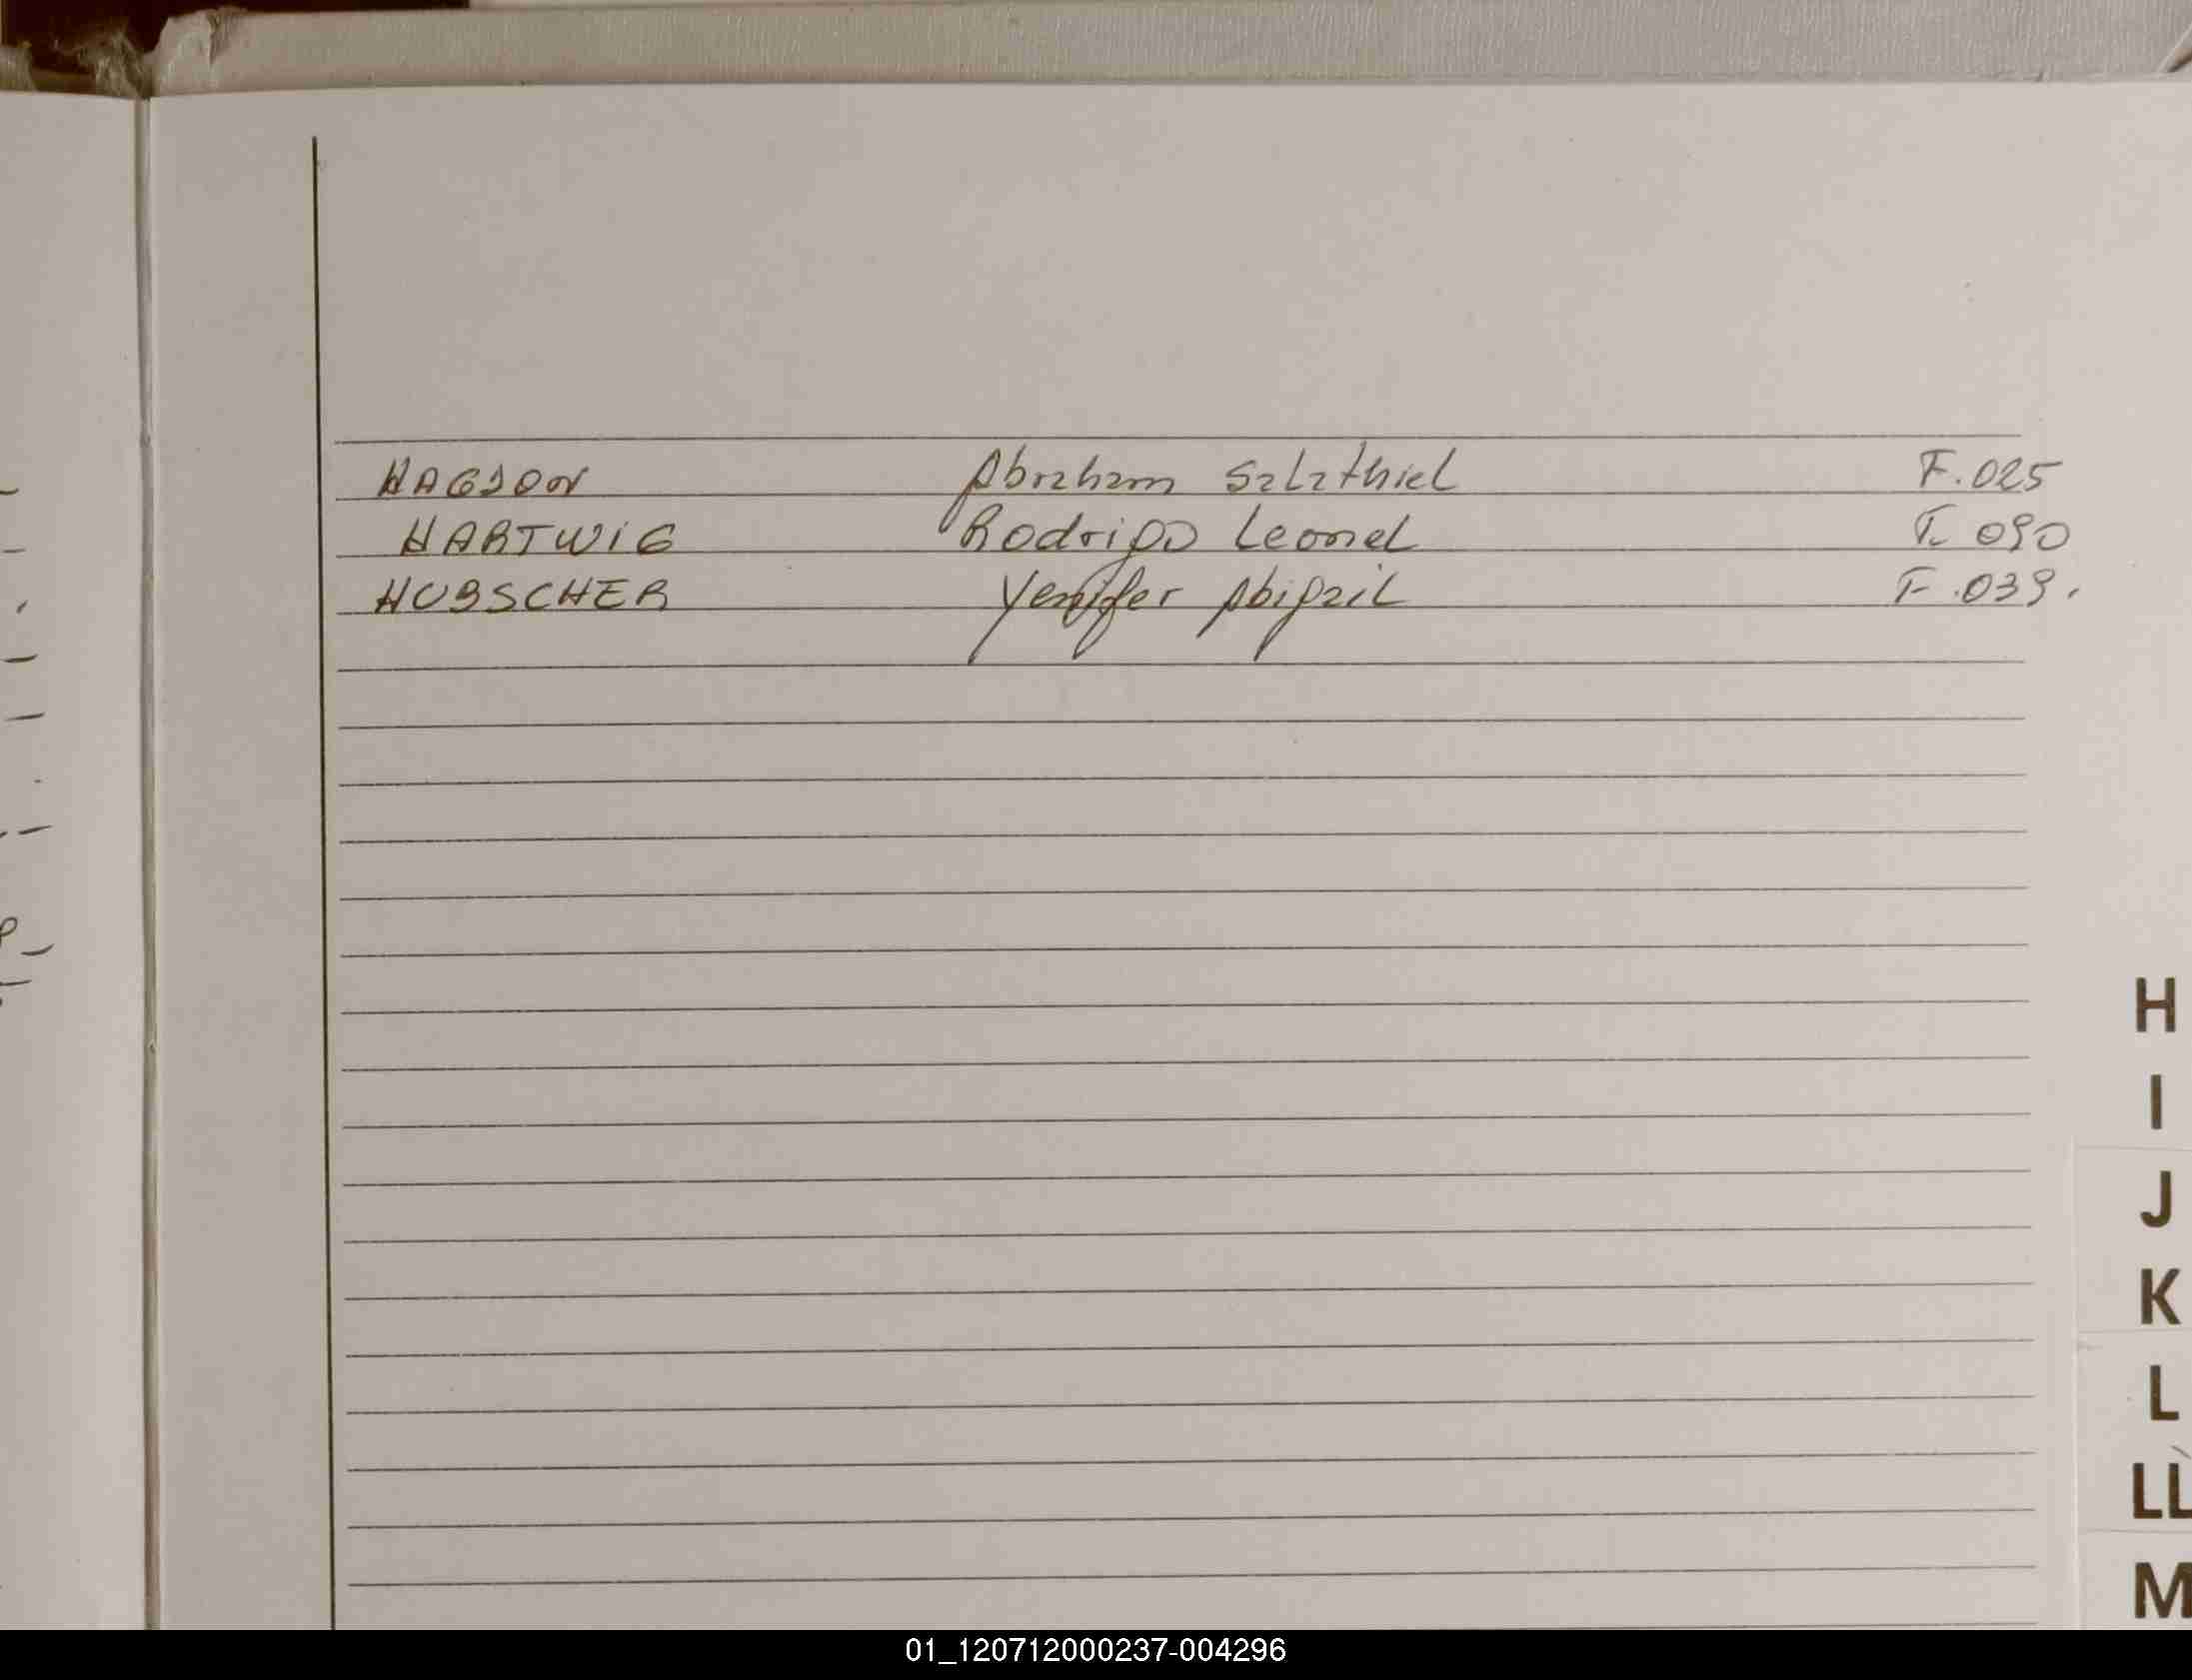 HAGDON Abraham Salathiel F.025
HARTWIG Rodrigo Leonel F. 090
HUBSCHER Yenifer Abigail F.039.
H
I
J
K
L
LL
M
01_120712000237-004296